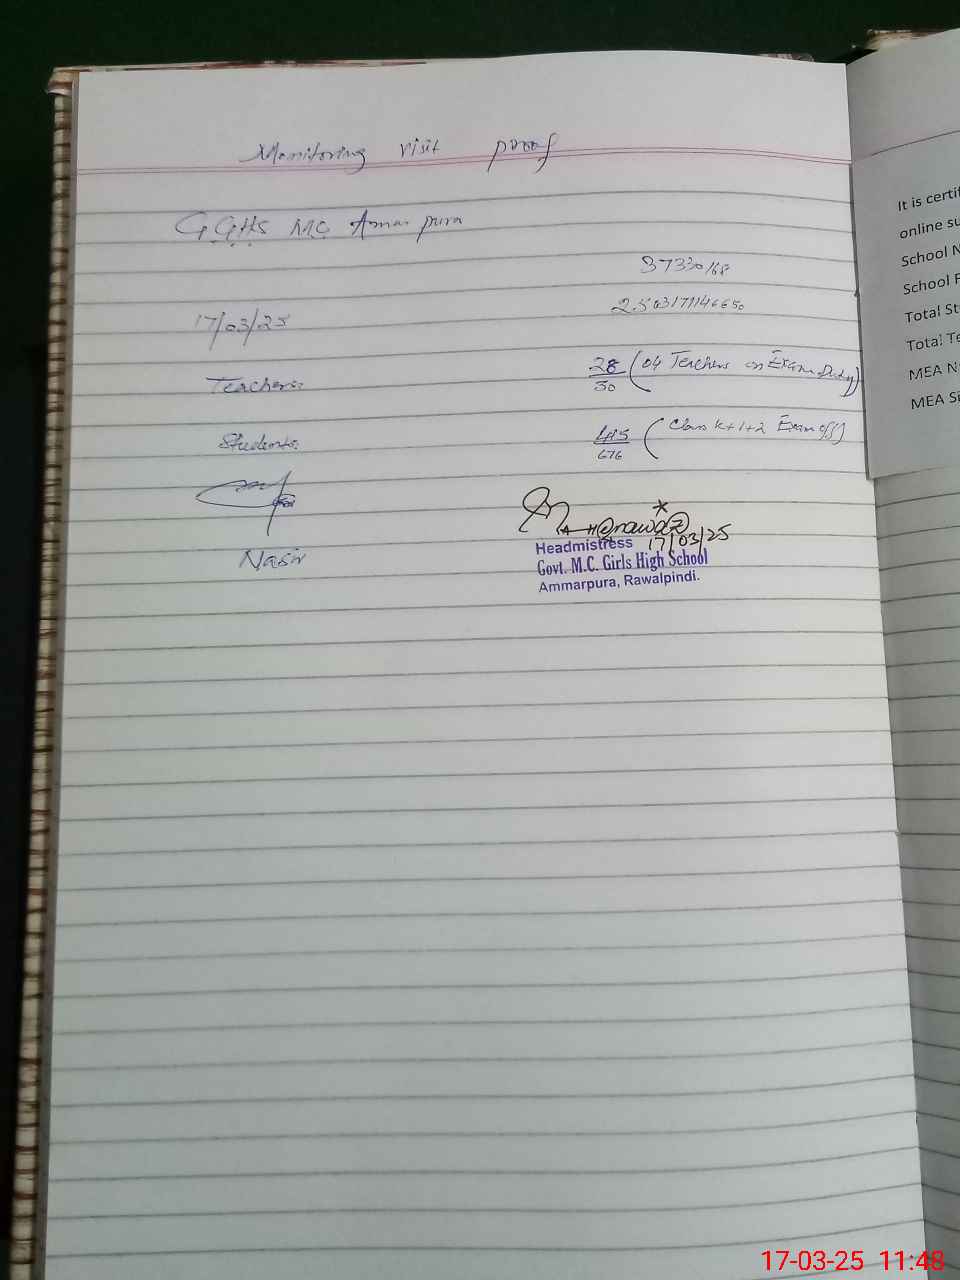 Monitoring visit proof
GGHS MC Amar pura
37330168
17/03/25
Teachers: 28/30 (04 Teachers on Exam Duty)
Students: 485/676 (Class K+1+2 Exam off)
Nasir
17/03/25
Headmistress
Govt. M.C. Girls High School
Ammarpura, Rawalpindi.
It is certi
online su
School N
School
Total St
Total Te
MEA N
MEA Si
17-03-25 11:48